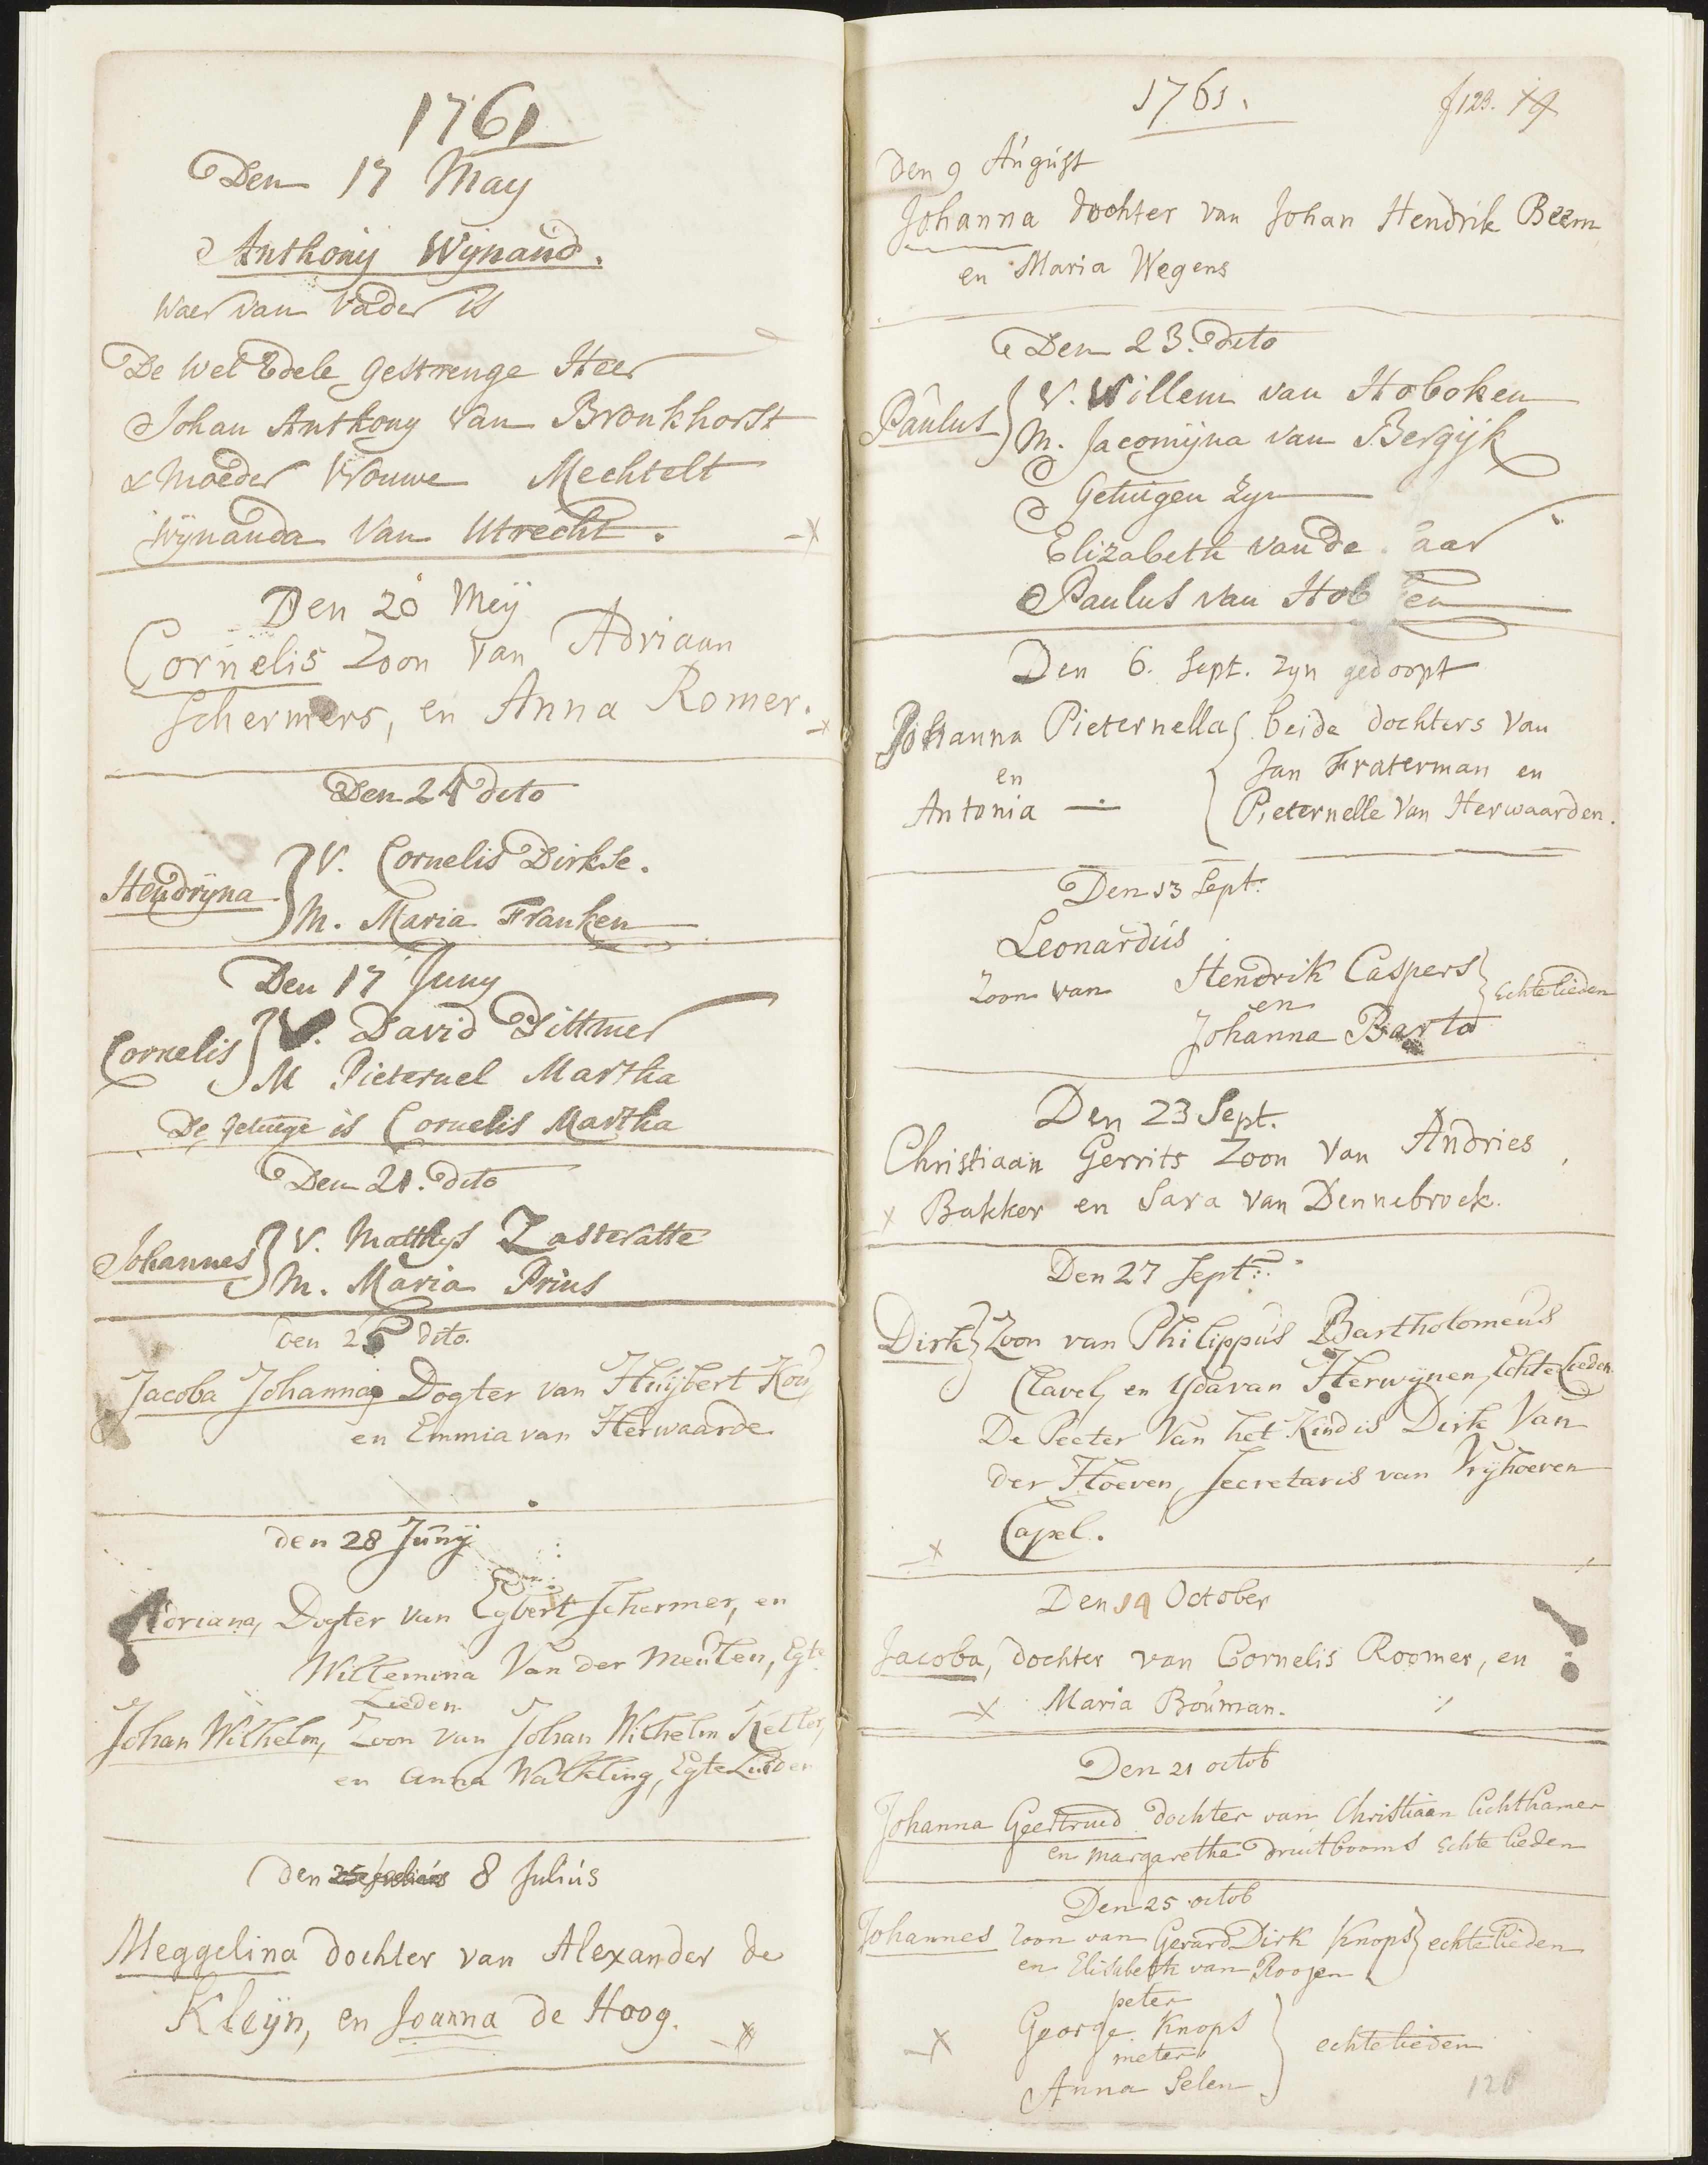 1761
Den 17 May
Anthony Wynand.
Waer van Vader is
De Wel Edele gestrenge Heer
Johan Anthony Van Bronkhorst
& Moeder Vrouwe Mechtelt
Wynanda Van Utrecht.
Den 20 Meÿ
Cornelis Zoon Van Adriaan
Schermers, en Anna Romer.
Den 24 dito
Hendryna } V. Cornelis Dirkse.
M. Maria Franken
Den 17 Juny
Cornelis } V. David Dittmer
M Pieternel Martha
De getuege is Cornelis Martha
Den 21. dito
Johannes } V. Matthys Zasteratte
M. Maria Prins
den 25 dito.
Jacoba Johanna, Dogter van Huÿbert
en Emmia van Herwaarde
den 28 Junÿ
Adriana, Dogter van Egbert Schermer, en
Willemina Van der Meulen, Egte
Lieden
Johan Wilhelm, Zoon van Johan Wilhelm Keller,
en Anna Walkling, Egte Lieden
den 8 Julius
Meggelina dochter van Alexander de
Kleÿn, en Joanna de Hoog.
1761.
f 123.
Den 9 August
Johanna dochter van Johan Hendrik Beem
en Maria Wegens
Den 23. dito
Paulus } V. Willem van Hoboken
M. Jacomyna van Bergyk
Getuigen zyn
Elizabeth van de aar
Paulus van Hob en
Den 6. Sept. zyn gedoopt
Johanna Pieternella { beide dochters van
en Jan Fraterman en
Antonia — { Pieternelle Van Herwaarden.
Den 13 Sept:
Leonardus
Zoon van Hendrik Caspers } Echte lieden
en
Johanna Barto
Den 23 Sept.
Christiaan Gerrits Zoon Van Andries
Bakker en Sara van Dennebroek.
Den 27 Sept:
Dirk } Zoon van Philippus Bartholomeus
Clavel, en Yda van Herwynen, Echte Lieden
De Peeter Van het Kind is Dirk Van
der Hoeven, Secretaris van Vryhoeven
Capel.
Den 19 October
Jacoba, dochter van Cornelis Roomer, en
Maria Bouman.
Den 21 octob
Johanna Geertrued dochter van Christiaan Lichthamer
en Margaretha Druitbooms Echte lieden
Den 25 octob
Johannes Zoon van Gerard Dirk Knops } echte lieden
en Elisabeth van Roojen
peter
George Knops
meter } echte lieden
Anna Selen